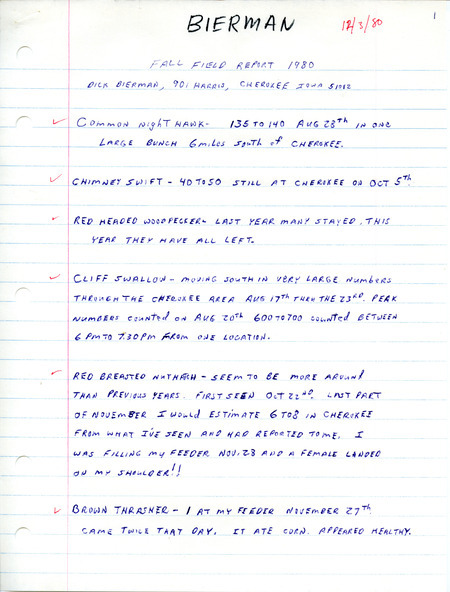 BIERMAN
12/3/80
1
FALL FIELD REPORT 1980
DICK BIERMAN, 901 HARRIS, CHEROKEE IOWA 51012
COMMON NIGHTHAWK- 135 TO 140 AUG 28th IN ONE
LARGE BUNCH 6 miles SOUTH of CHEROKEE.
CHIMNEY SWIFT - 40 TO 50 STILL AT CHEROKEE ON OCT 5th.
RED HEADED WOODPECKER- LAST YEAR MANY STAYED, THIS
YEAR THEY HAVE ALL LEFT.
CLIFF SWALLOW - MOVING SOUTH IN VERY LARGE NUMBERS
THROUGH THE CHEROKEE AREA AUG 17th THRU THE 23RD. PEAK
NUMBERS COUNTED ON AUG 20th 600 TO 700 COUNTED BETWEEN
6 PM TO 7:30 PM FROM ONE LOCATION.
RED BREASTED NUTHATCH - SEEM TO BE MORE AROUND
THAN PREVIOUS YEARS. FIRST SEEN OCT 22ND. LAST PART
OF NOVEMBER I WOULD ESTIMATE 6 TO 8 IN CHEROKEE
FROM WHAT I'VE SEEN AND HAD REPORTED TO ME. I
WAS FILLING MY FEEDER NOV. 28 AND A FEMALE LANDED
ON MY SHOULDER!!
BROWN THRASHER - 1 AT MY FEEDER NOVEMBER 27th.
CAME TWICE THAT DAY. IT ATE CORN. APPEARED HEALTHY.